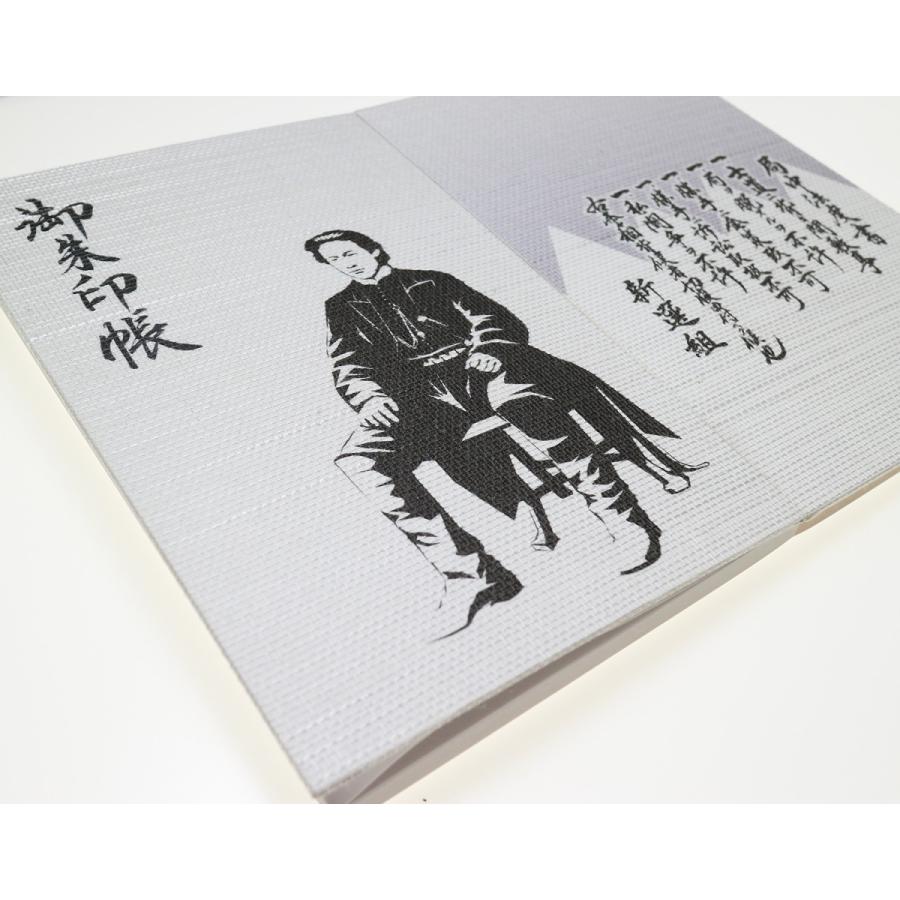 御朱印帳
局中法度書
一士道ニ背キ間敷事
一局ヲ脱スルヲ不許
一勝手ニ金策致不可
一勝手ニ訴訟取扱不可
一私ノ闘争ヲ不許
右条々相背候者切腹申付ベク候也
新選組